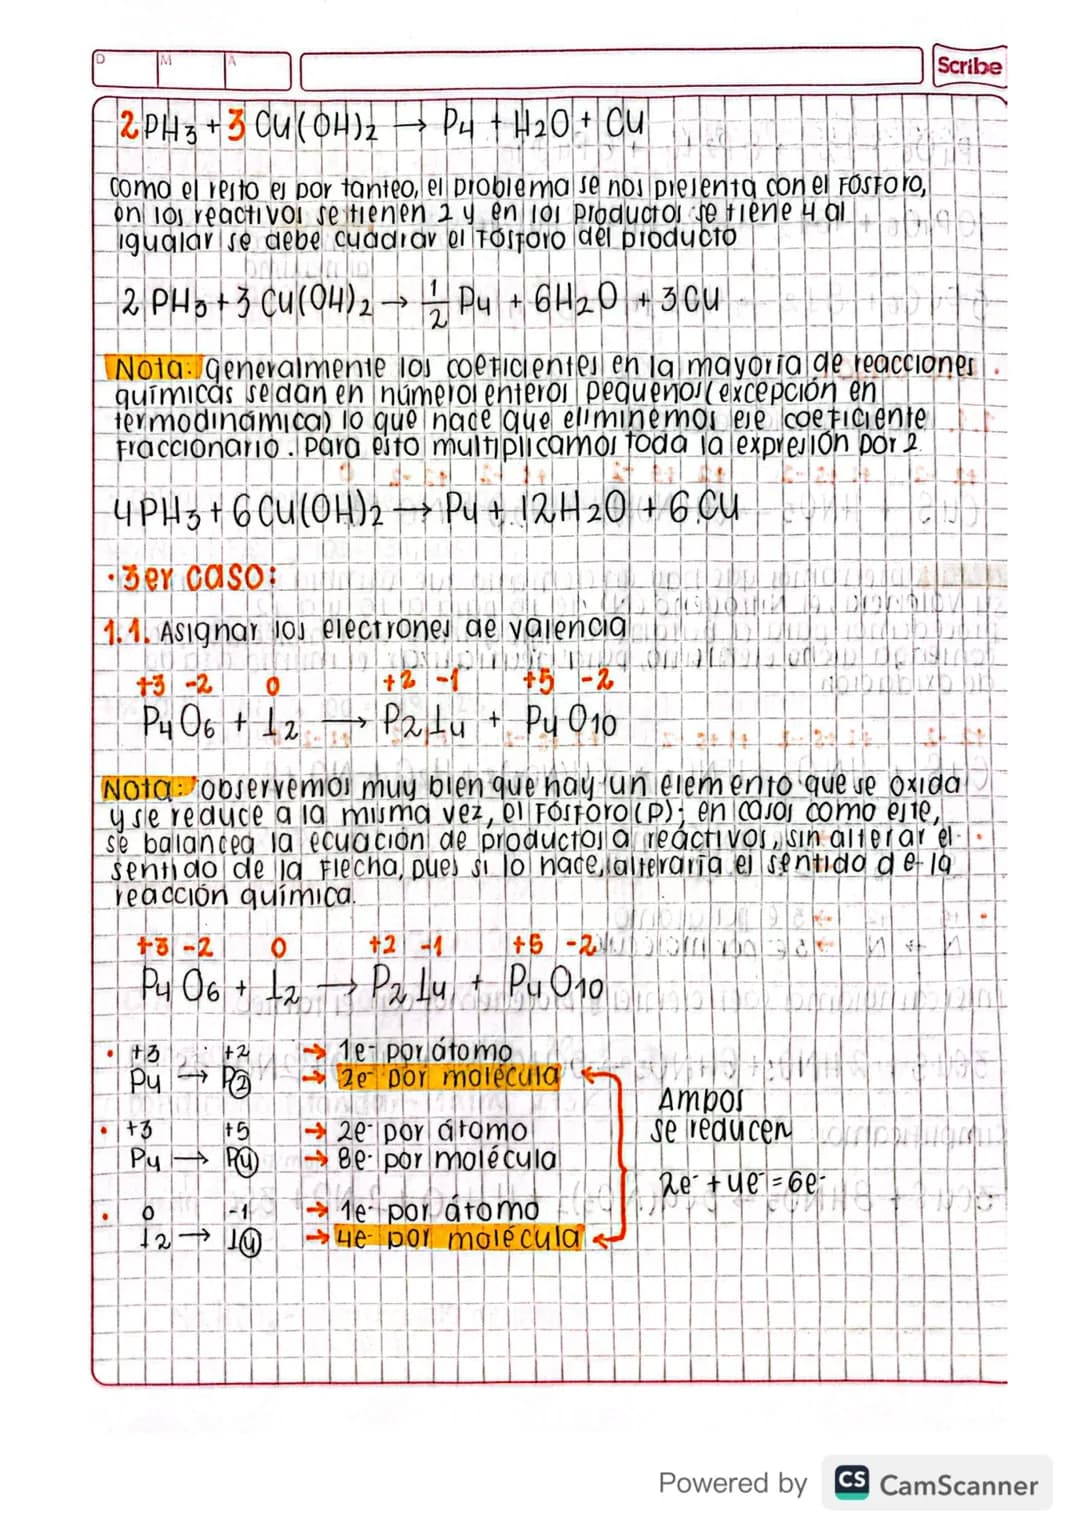 D M A
Scribe
2PH3 + 3 Cu(OH)2 → P4 + H2O + Cu
como el resto es por tanteo, el problema se nos presenta con el FÓSFORO,
en los reactivos se tienen 2 y en los productos se tiene 4 al
igualar se debe cuadrar el FÓSFORO del producto
2 PH3 + 3 Cu(OH)2 → 1/2 P4 + 6H2O + 3Cu
Nota: Generalmente los coeficientes en la mayoría de reacciones
químicas se dan en números enteros pequeños (excepción en
termodinámica) lo que hace que eliminemos ese coeficiente
Fraccionario. Para esto multiplicamos toda la expresión por 2.
4PH3 + 6Cu(OH)2 → P4 + 12H2O + 6Cu
· 3er caso:
1.1. Asignar los electrones de valencia
+3 -2 0 +2 -1 +5 -2
P4O6 + I2 → P2I4 + P4O10
Nota: observemos muy bien que hay un elemento que se oxida
y se reduce a la misma vez, el FÓSFORO (P); en casos como este,
se balancea la ecuación de productos a reáctivos, sin alterar el
sentido de la Flecha, pues si lo hace, alteraría el sentido de la
reacción química.
+3 -2 0 +2 -1 +5 -2
P4O6 + I2 → P2I4 + P4O10
• +3 +2 → 1e- por átomo
P4 → P2 → 2e- por molécula
• +3 +5 → 2e- por átomo
P4 → P4 → 8e- por molécula
• 0 -1 → 1e- por átomo
I2 → I4 → 4e- por molécula
Ampos
se reducen
2e- + 4e- = 6e-
Powered by CS CamScanner